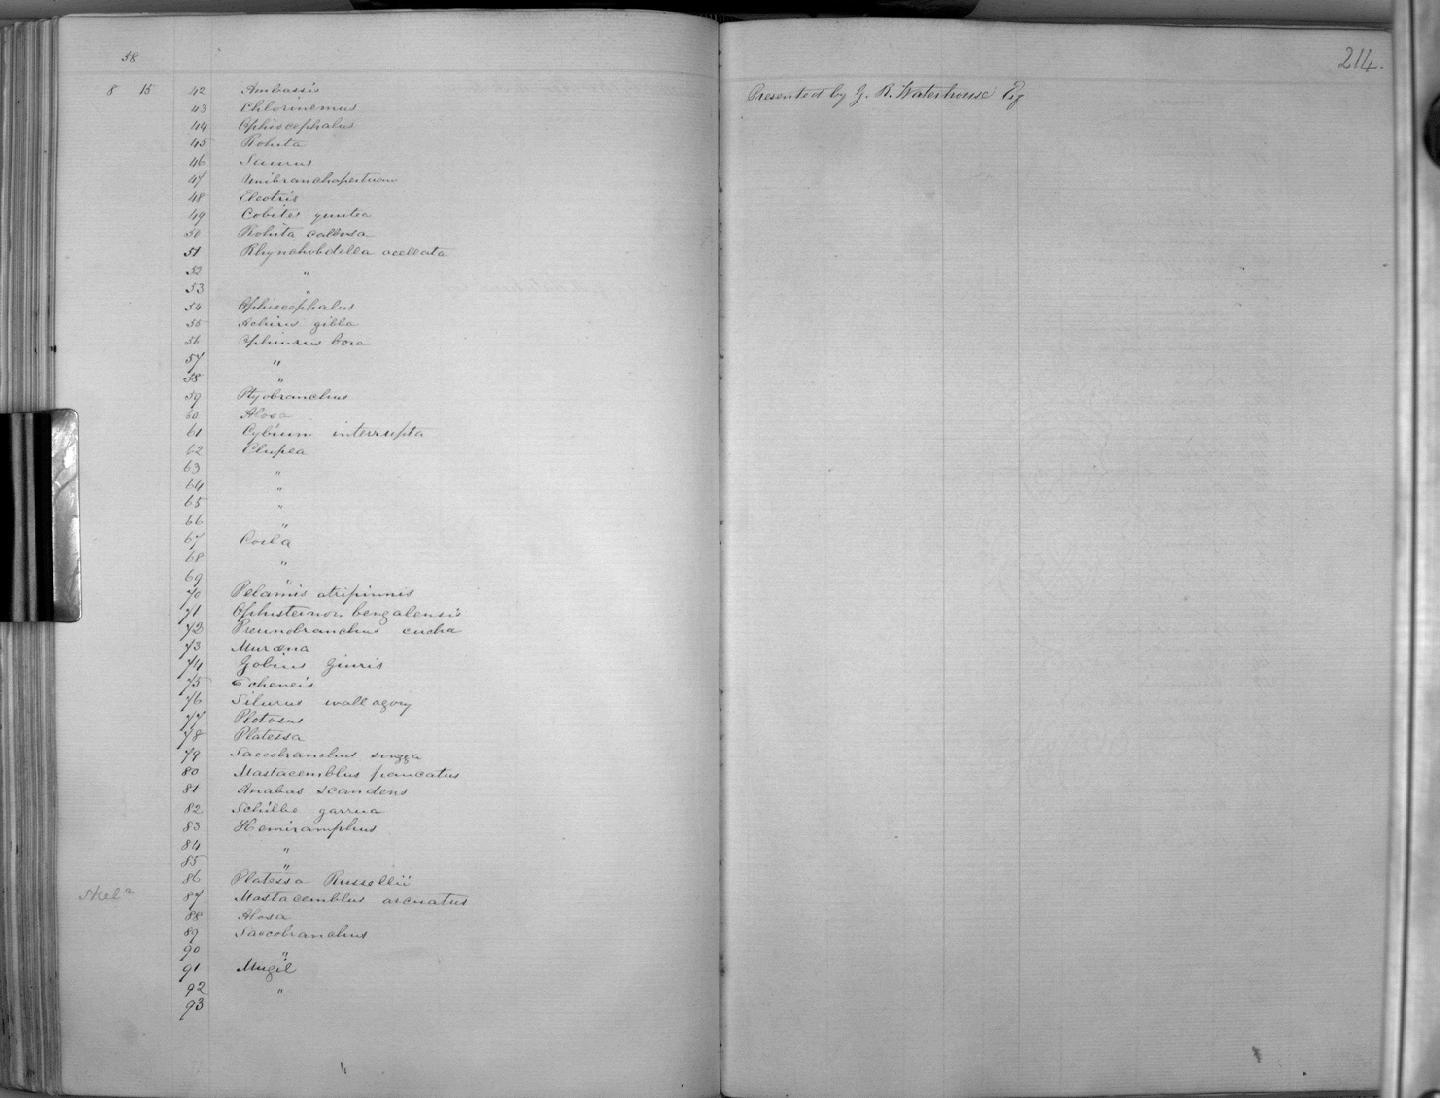 58
214.
8 15 42 Ambassis
Presented by G. R. Waterhouse Esq
43 Chlorinemus
44 Ophiocephalus
45 Rohita
46
47 Unibranchapertura
48 Eleotris
49 Cobites guntea
50 Rohita callusa
51 Rhynchobdella ocellata
52 "
53 "
54 Ophiocephalus
55 Achirus gibba
56 boro
57 "
58 "
59 Ptyobranchus
60 Alosa
61 Cybium interrupta
62 Clupea
63 "
64 "
65 "
66 "
67 Coila
68 "
69 "
70 Pelamis atripinnis
71 bengalensis
72 cuchia
73 Muræna
74 Gobius Giuris
75 Echeneis
76 Silurus wallagory
77 Plotosus
78 Platessa
79 Saccobranchus singga
80 Mastacemblus pancatus
81 Anabas scandens
82 Schilbe garrua
83 Hemiramphus
84 "
85 "
86 Platessa Russellii
Skeln 87 Mastacemblus
88 Alosa
89 Saccobranchus
90 "
91 Mugil
92 "
93